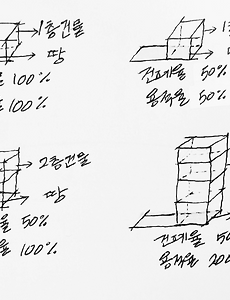 1층건물
땅
100%
100%
건폐율 50%
용적율 50%
2층건물
땅
50%
100%
건폐율
용적율